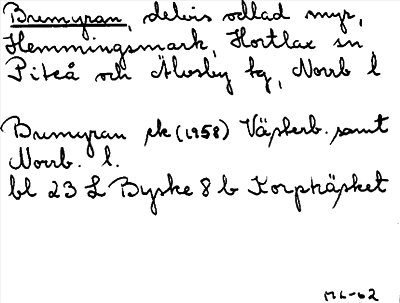 Bremyran, delvis odlad myr,
Hemmingsmark, Hortlax sn
Piteå och Älvsby tg, Norrb l
Bremyran ek (1958) Västerb. samt
Norrb. l.
bl 23 L Byske 8 b Korpträsket
ML-62